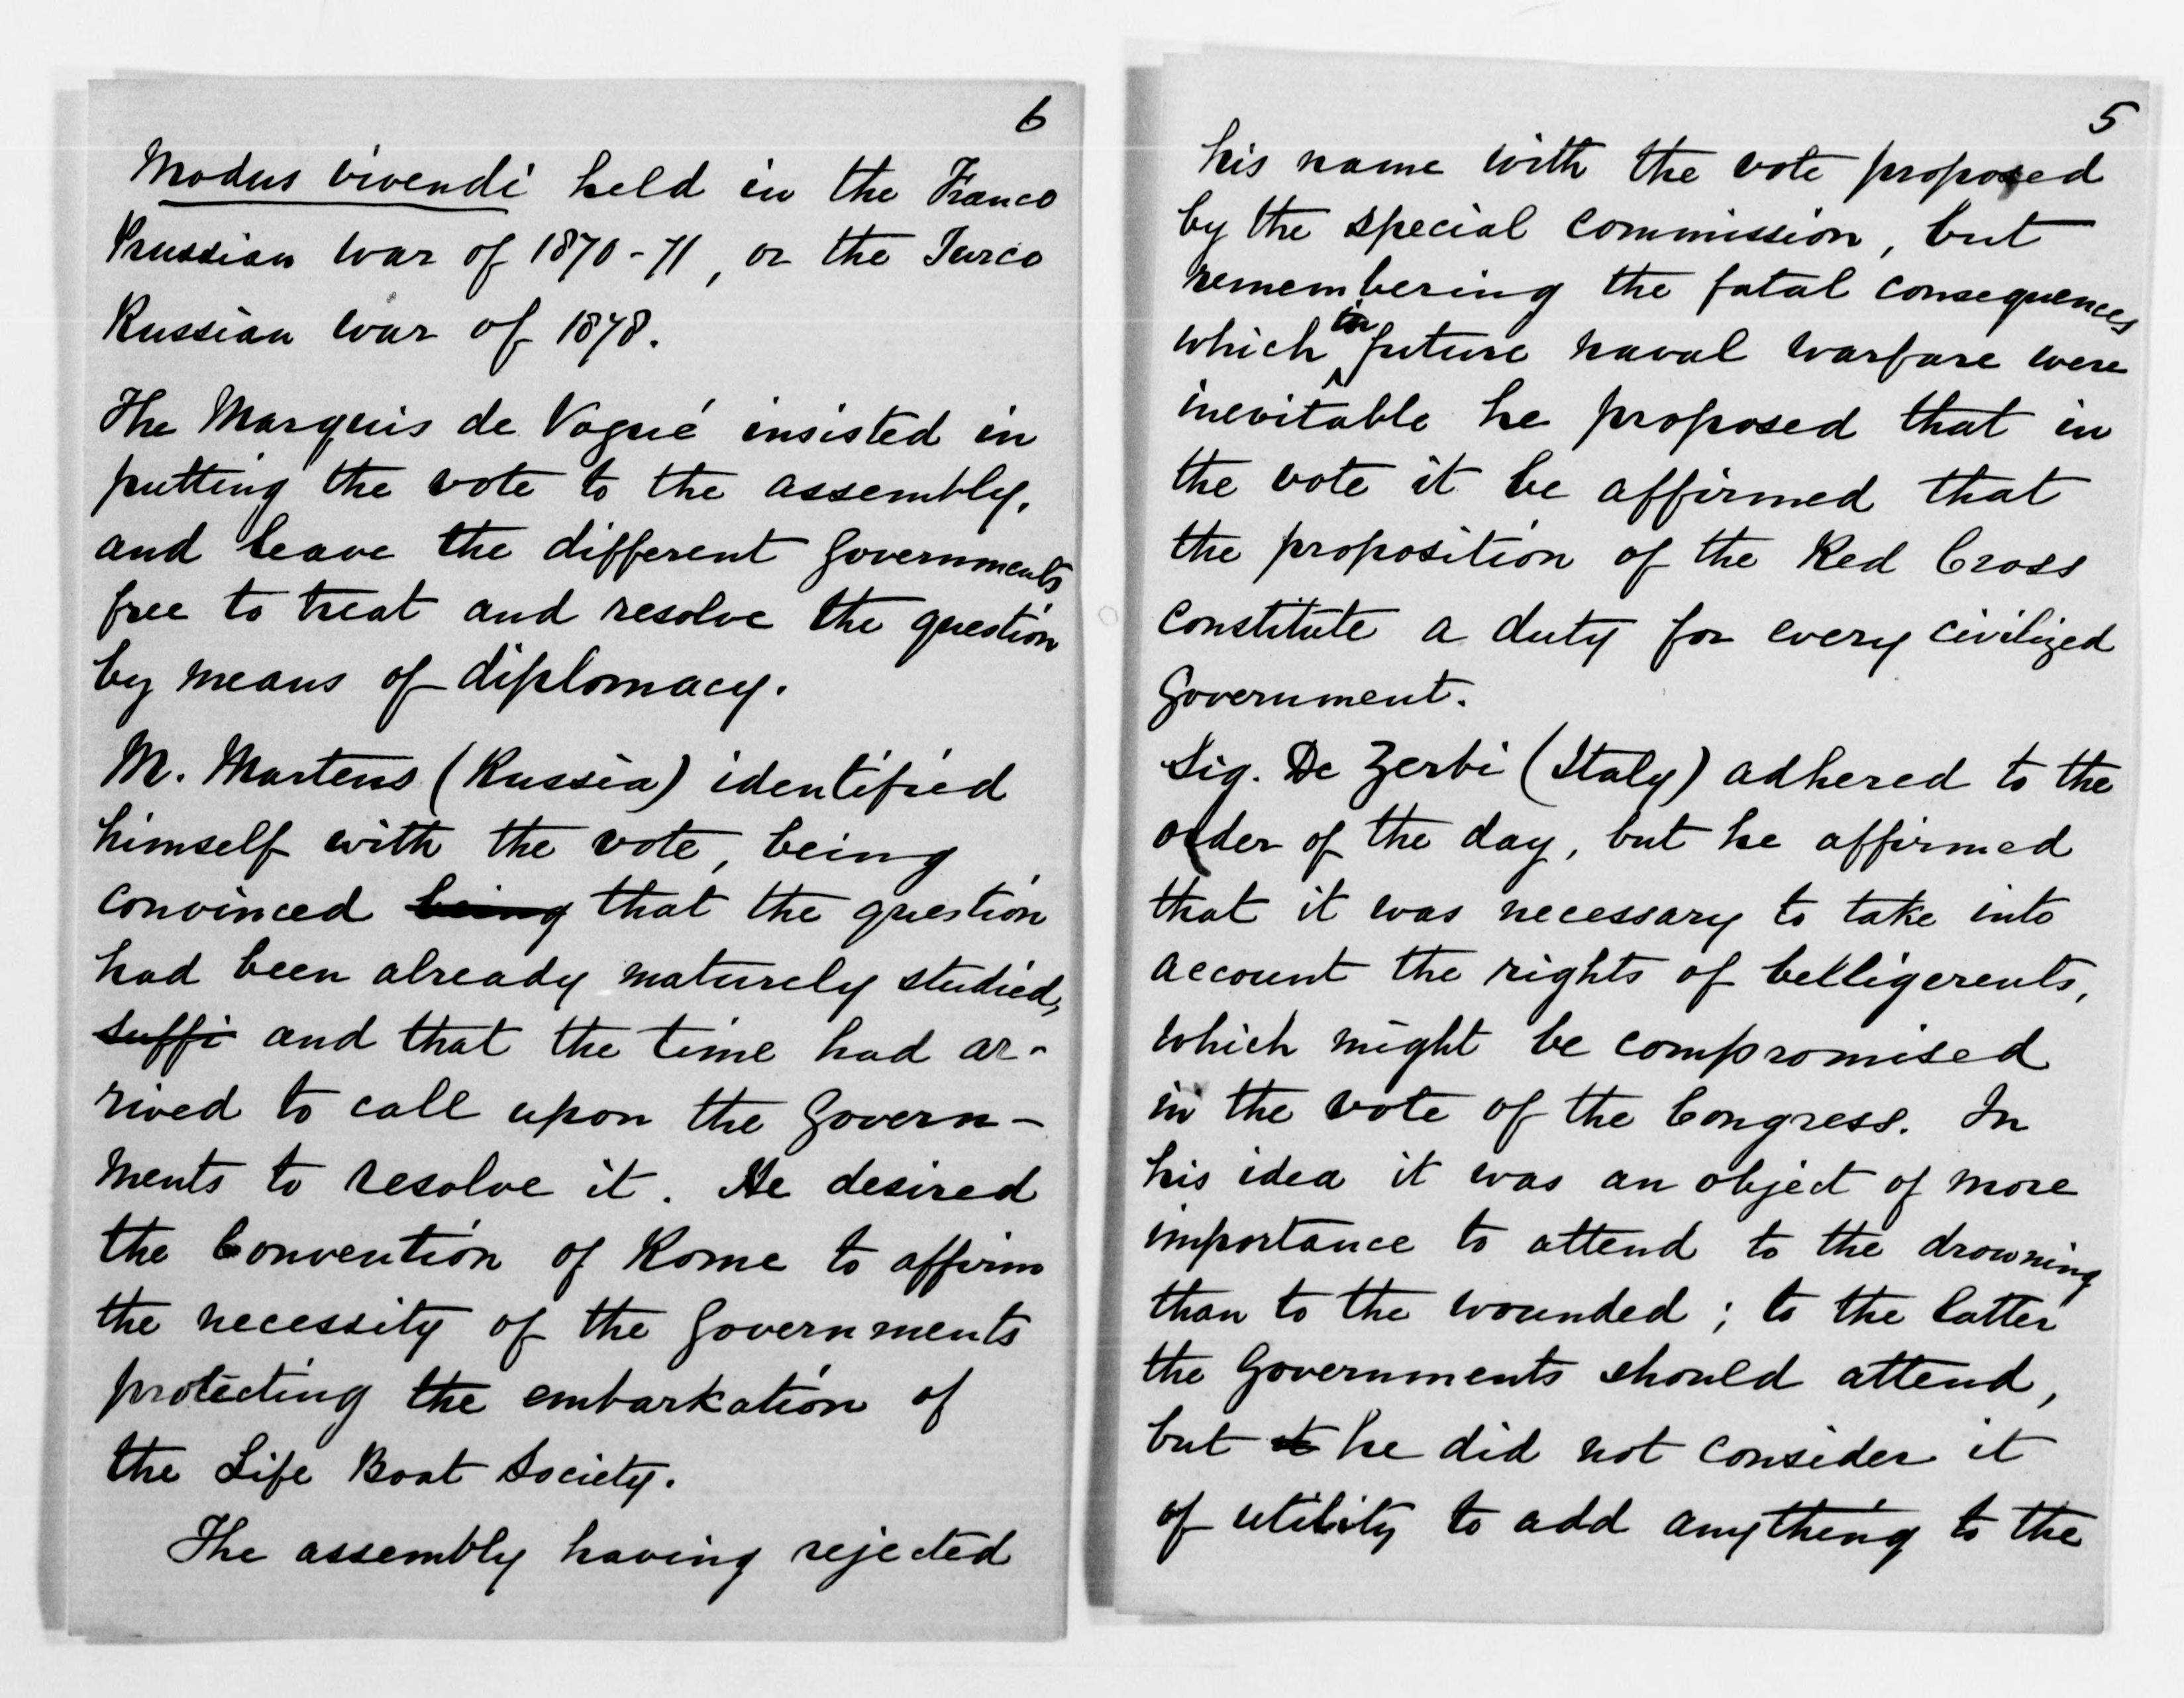 6
Modus vivendi held in the Franco
Prussian war of 1870-71, or the Turco
Russian war of 1878.
The Marquis de Vogué insisted in
putting the vote to the assembly,
and leave the different Governments
free to treat and resolve the question
by means of diplomacy.
M. Martens (Russia) identified
himself with the vote, being
convinced being that the question
had been already maturely studied,
suffi and that the time had ar-
rived to call upon the Govern-
ments to resolve it. He desired
the Convention of Rome to affirm
the necessity of the Governments
protecting the embarkation of
the Life Boat Society.
The assembly having rejected
5
his name with the vote proposed
by the special commission, but
remembering the fatal consequences
which in future naval warfare were
inevitable he proposed that in
the vote it be affirmed that
the proposition of the Red Cross
constitute a duty for every civilized
Government.
Sig. De Zerbi (Italy) adhered to the
order of the day, but he affirmed
that it was necessary to take into
account the rights of belligerents,
which might be compromised
in the vote of the Congress. In
his idea it was an object of more
importance to attend to the drowning
than to the wounded; to the latter
the Governments should attend,
but it he did not consider it
of utility to add anything to the